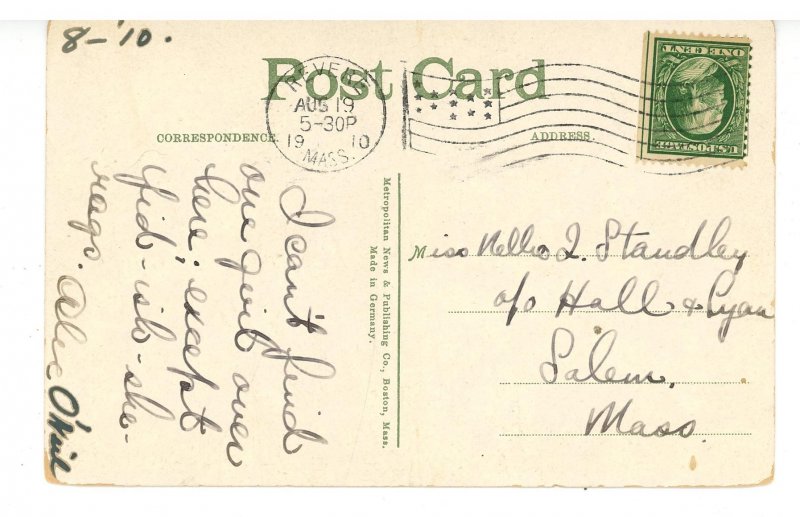 8-'10.
Post Card
REVERE
AUG 19
5-30P
19 10
MASS.
ONE CENT
U.S. POSTAGE
CORRESPONDENCE.
ADDRESS.
I can't find
one quit over
here: except
fid-ish-she-
rags. Alec O'Neil
Metropolitan News & Publishing Co., Boston, Mass.
Made in Germany.
Miss Nelle J. Standley
c/o Hall & Lyon
Salem,
Mass.